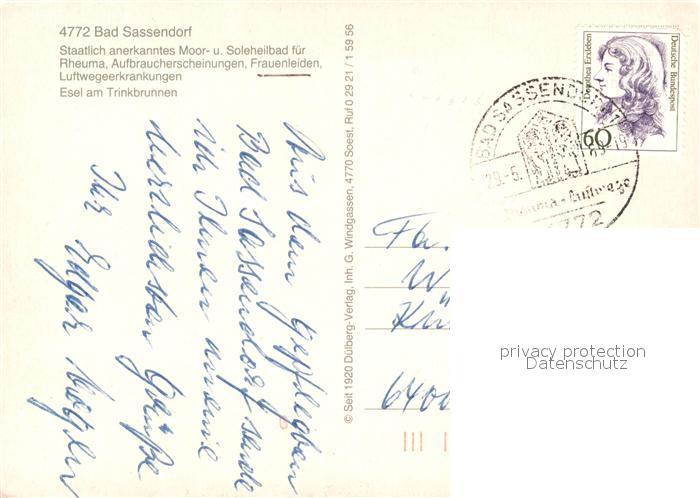 4772 Bad Sassendorf
Staatlich anerkanntes Moor- u. Soleheilbad für
Rheuma, Aufbraucherscheinungen, Frauenleiden,
Luftwegeerkrankungen
Esel am Trinkbrunnen
Aus dem gepflegten
Bad Sassendorf sende
ich Ihnen meine
herzlichsten Grüße
Ihr Edgar
© Seit 1920 Dülberg-Verlag, Inh. G. Windgassen, 4770 Soest, Ruf 0 29 21 / 1 59 56
Dorothea Erxleben
Deutsche Bundespost
60
BAD SASSENDORF
29.-6.
Rheuma - Luftwege
4772
Fa.
W
6400
privacy protection
Datenschutz